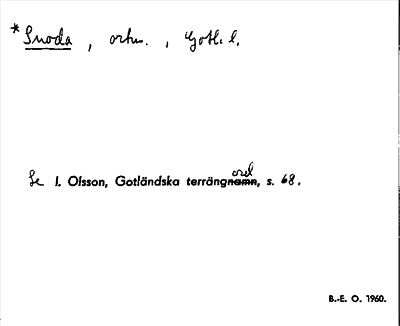 *Snoda, ortn., Gotl. l.
Se I. Olsson, Gotländska terrängnamn, s. 68.
ord
B.-E. O. 1960.